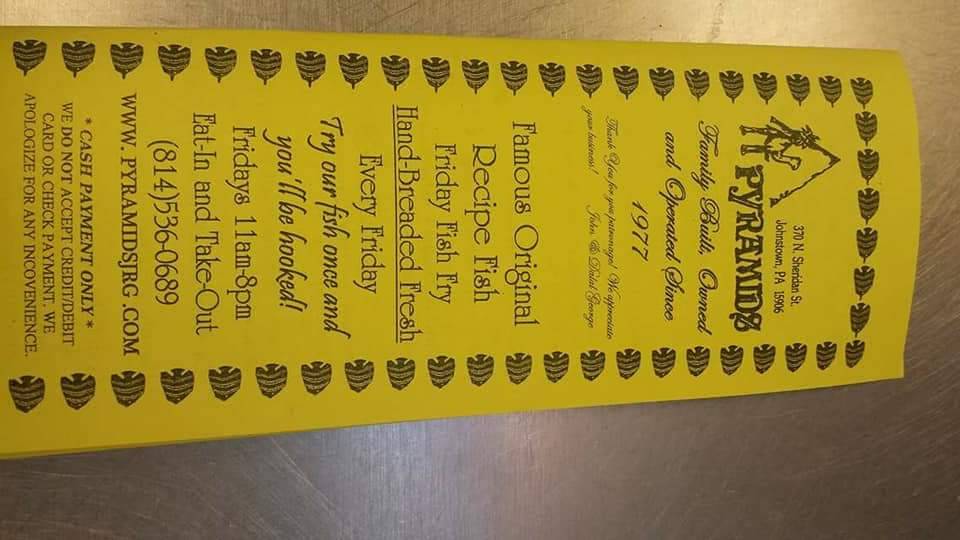 370 N. Sheridan St.
Johnstown, PA 15906
PYRAMIDS
Family Built, Owned
and Operated Since
1977
Thank You for you patronage! We appreciate
your business! John & Dalal George
Famous Original
Recipe Fish
Friday Fish Fry
Hand-Breaded Fresh
Every Friday
Try our fish once and
you'll be hooked!
Fridays 11am-8pm
Eat-In and Take-Out
(814)536-0689
WWW.PYRAMIDSJRG.COM
* CASH PAYMENT ONLY *
WE DO NOT ACCEPT CREDIT/DEBIT
CARD OR CHECK PAYMENT. WE
APOLOGIZE FOR ANY INCOVENIENCE.